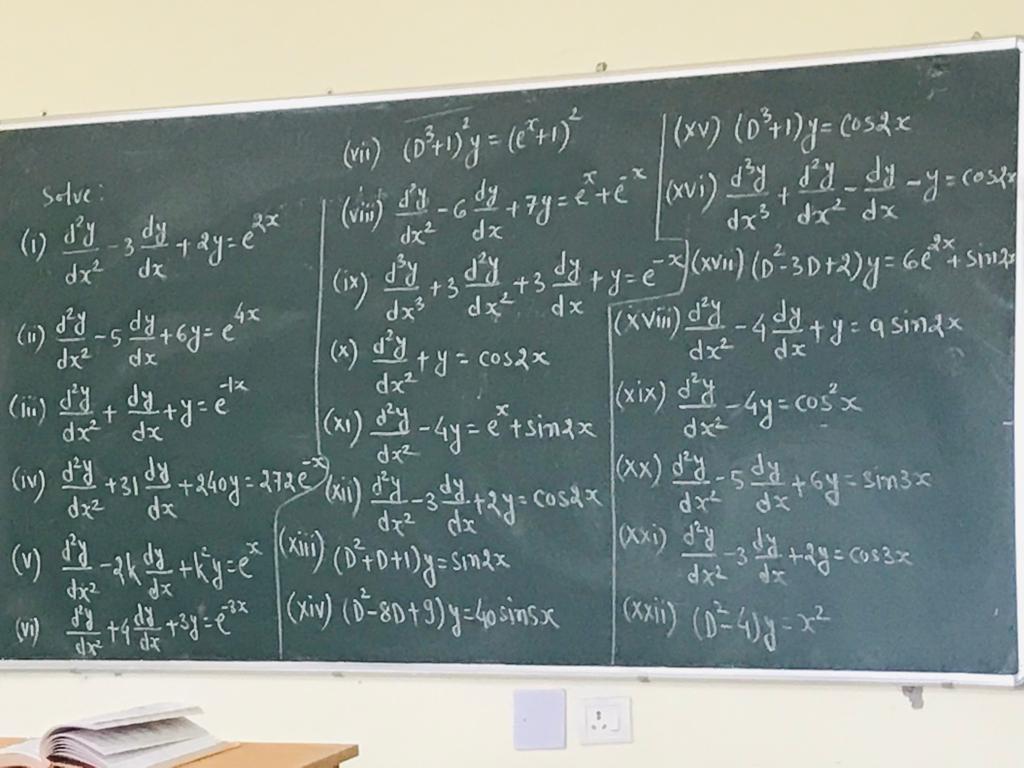 Solve:
(i) d²y/dx² - 3 dy/dx + 2y = e^{2x}
(ii) d²y/dx² - 5 dy/dx + 6y = e^{4x}
(iii) d²y/dx² + dy/dx + y = e^{-1x}
(iv) d²y/dx² + 31 dy/dx + 240y = 272e^{-x}
(v) d²y/dx² - 2k dy/dx + k²y = e^x
(vi) d²y/dx² + 4 dy/dx + 3y = e^{-3x}
(vii) (D³+1)²y = (e^x+1)²
(viii) d²y/dx² - 6 dy/dx + 7y = e^x + e^{-x}
(ix) d³y/dx³ + 3 d²y/dx² + 3 dy/dx + y = e^{-x}
(x) d²y/dx² + y = cos2x
(xi) d²y/dx² - 4y = e^x + sin2x
(xii) d²y/dx² - 3 dy/dx + 2y = cos2x
(xiii) (D²+D+1)y = sin2x
(xiv) (D²-8D+9)y = 40sin5x
(xv) (D³+1)y = cos2x
(xvi) d³y/dx³ + d²y/dx² - dy/dx - y = cos2x
(xvii) (D²-3D+2)y = 6e^{2x} + sin2x
(xviii) d²y/dx² - 4 dy/dx + y = a sin2x
(xix) d²y/dx² - 4y = cos²x
(xx) d²y/dx² - 5 dy/dx + 6y = sin3x
(xxi) d²y/dx² - 3 dy/dx + 2y = cos3x
(xxii) (D²-4)y = x²